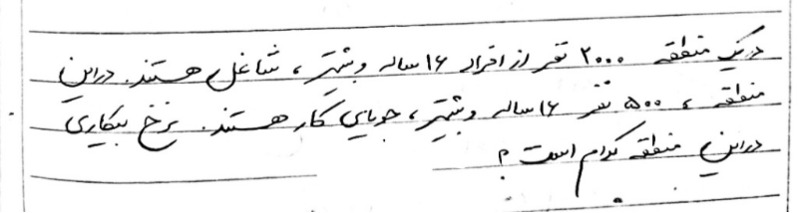 در یک منطقه ۲۰۰۰ نفر از افراد ۱۶ ساله و بیشتر، شاغل هستند. در این
منطقه، ۵۰۰ نفر ۱۶ ساله و بیشتر، جویای کار هستند. نرخ بیکاری
در این منطقه کدام است؟